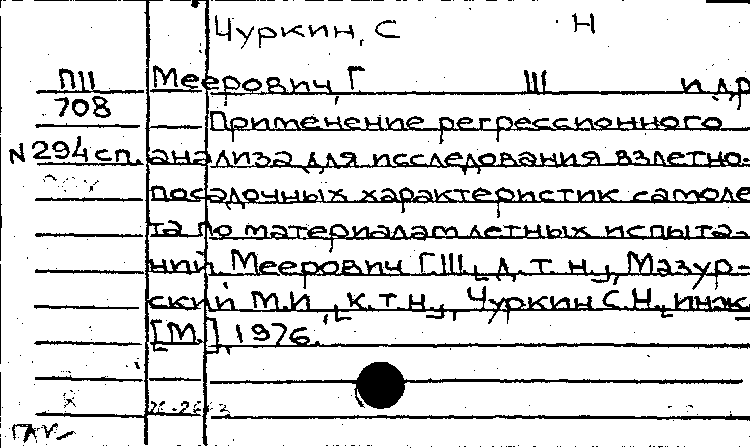 Чуркин, С Н
ПII Меерович, Г III и др
708
Применение регрессионного
N 294сп. анализа для исследования взлетно-
посадочных характеристик самоле
та по материалам летных испыта-
ний. Меерович Г.Ш., д.т.н., Мазур-
ский М.И., к.т.н., Чуркин С.Н., инж
[М.], 1976.